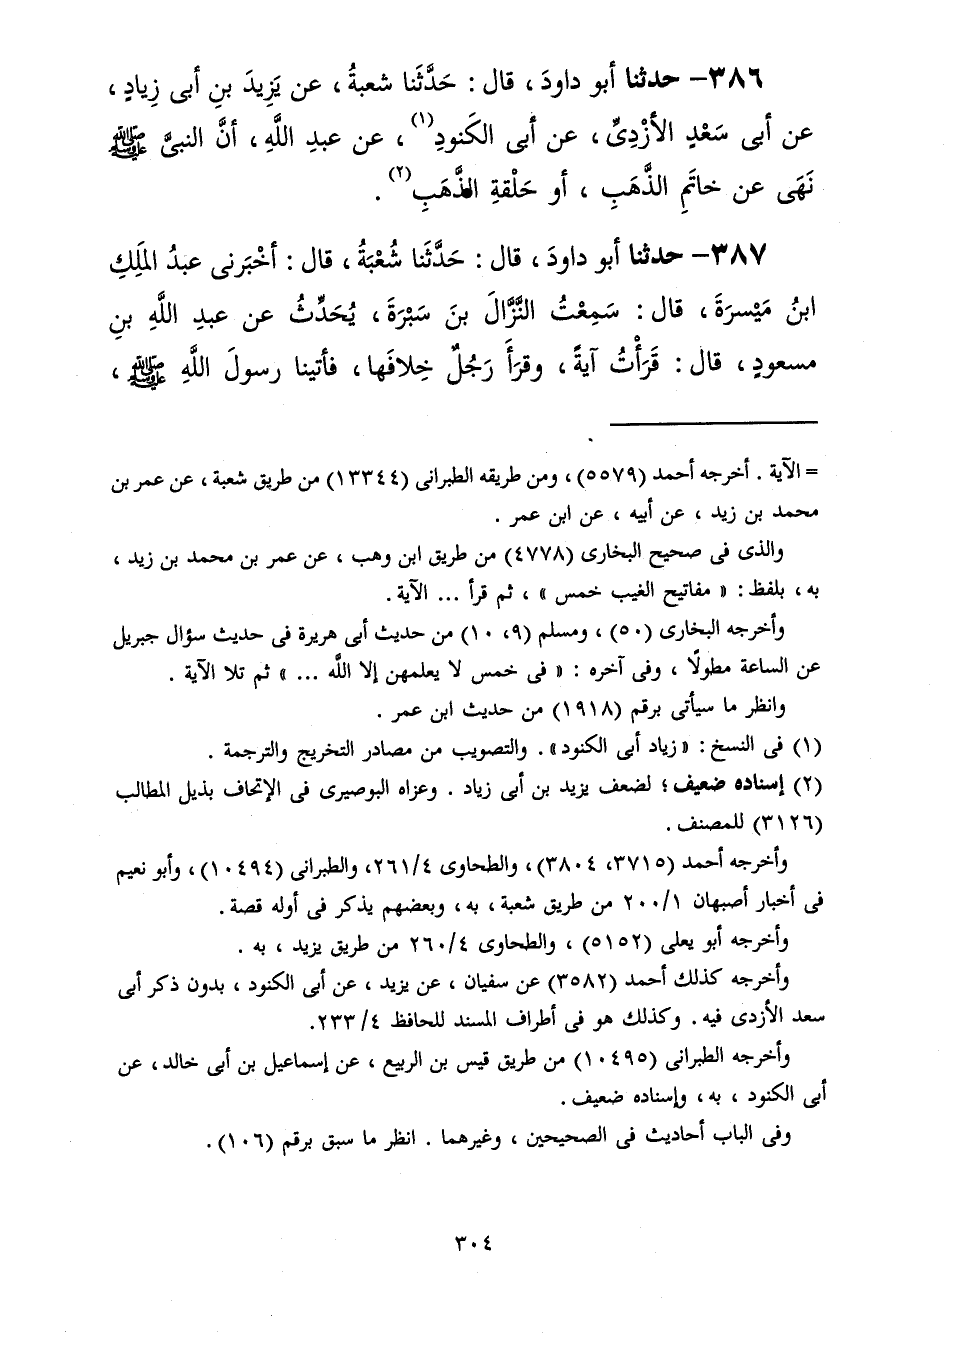 ٣٨٦- حدثنا أبو داودَ ، قال : حَدَّثَنا شعبةُ ، عن يَزِيدَ بنِ أبى زِيادٍ ،
عن أبى سَعْدٍ الأزْدِىِّ ، عن أبى الكَنودِ(١) ، عن عبدِ اللَّهِ ، أنَّ النبىَّ ﷺ
نَهَى عن خاتَمِ الذَّهَبِ ، أو حَلْقةِ الذَّهَبِ(٢) .
٣٨٧- حدثنا أبو داودَ ، قال : حَدَّثَنا شُعْبَةُ ، قال : أخْبَرنى عبدُ المَلِكِ
ابنُ مَيْسرَةَ ، قال : سَمِعْتُ النَّزَّالَ بنَ سَبْرَةَ ، يُحَدِّثُ عن عبدِ اللَّهِ بنِ
مسعودٍ ، قال : قَرَأْتُ آيةً ، وقرَأَ رَجُلٌ خِلافَها ، فأتينا رسولَ اللَّهِ ﷺ ،
= الآية . أخرجه أحمد (٥٥٧٩) ، ومن طريقه الطبرانى (١٣٣٤٤) من طريق شعبة ، عن عمر بن
محمد بن زيد ، عن أبيه ، عن ابن عمر .
والذى فى صحيح البخارى (٤٧٧٨) من طريق ابن وهب ، عن عمر بن محمد بن زيد ،
به ، بلفظ : « مفاتيح الغيب خمس » ، ثم قرأ ... الآية .
وأخرجه البخارى (٥٠) ، ومسلم (٩، ١٠) من حديث أبى هريرة فى حديث سؤال جبريل
عن الساعة مطولًا ، وفى آخره : « فى خمس لا يعلمهن إلا اللَّه ... » ثم تلا الآية .
وانظر ما سيأتى برقم (١٩١٨) من حديث ابن عمر .
(١) فى النسخ : « زياد أبى الكنود» . والتصويب من مصادر التخريج والترجمة .
(٢) إسناده ضعيف ؛ لضعف يزيد بن أبى زياد . وعزاه البوصيرى فى الإتحاف بذيل المطالب
(٣١٢٦) للمصنف .
وأخرجه أحمد (٣٧١٥، ٣٨٠٤) ، والطحاوى ٢٦١/٤، والطبرانى (١٠٤٩٤) ، وأبو نعيم
فى أخبار أصبهان ٢٠٠/١ من طريق شعبة ، به ، وبعضهم يذكر فى أوله قصة .
وأخرجه أبو يعلى (٥١٥٢) ، والطحاوى ٢٦٠/٤ من طريق يزيد ، به .
وأخرجه كذلك أحمد (٣٥٨٢) عن سفيان ، عن يزيد ، عن أبى الكنود ، بدون ذكر أبى
سعد الأزدى فيه . وكذلك هو فى أطراف المسند للحافظ ٢٣٣/٤.
وأخرجه الطبرانى (١٠٤٩٥) من طريق قيس بن الربيع ، عن إسماعيل بن أبى خالد ، عن
أبى الكنود ، به ، وإسناده ضعيف .
وفى الباب أحاديث فى الصحيحين ، وغيرهما . انظر ما سبق برقم (١٠٦) .
٣٠٤